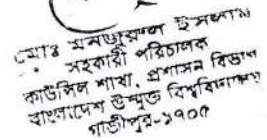 মোঃ মনজুরুল ইসলাম
সহকারী পরিচালক
কাউন্সিল শাখা, প্রশাসন বিভাগ
বাংলাদেশ উন্মুক্ত বিশ্ববিদ্যালয়
গাজীপুর-১৭০৫